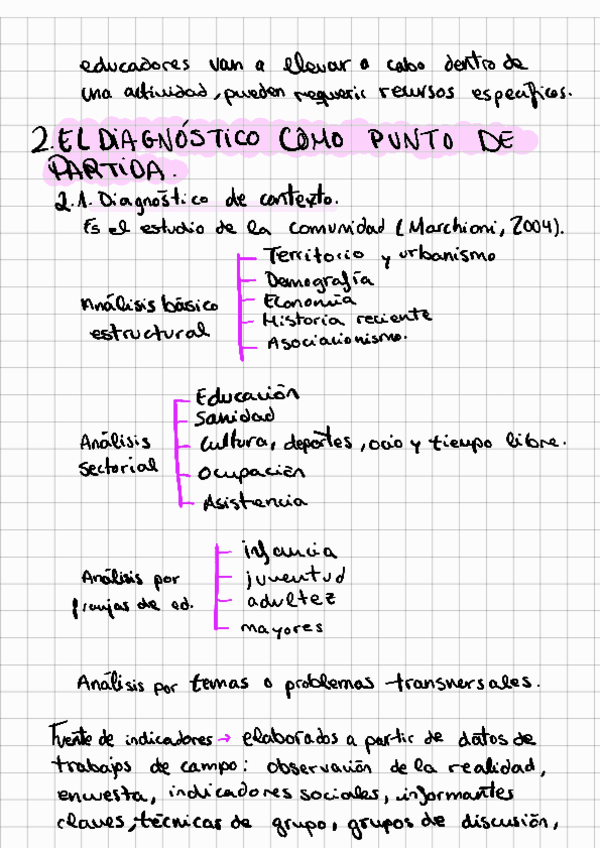 educadores van a llevar a cabo dentro de
una actividad, pueden requerir recursos específicos.
2. EL DIAGNÓSTICO COMO PUNTO DE
PARTIDA.
2.1. Diagnóstico de contexto.
Es el estudio de la comunidad (Marchioni, 2004).
Análisis básico
estructural
Territorio y urbanismo
Demografía
Economía
Historia reciente
Asociacionismo.
Análisis
sectorial
Educación
Sanidad
Cultura, deportes, ocio y tiempo libre.
Ocupación
Asistencia
Análisis por
franjas de ed.
infancia
juventud
adultez
mayores
Análisis por temas o problemas transversales.
Fuente de indicadores → elaborados a partir de datos de
trabajos de campo: observación de la realidad,
encuesta, indicadores sociales, informantes
claves, técnicas de grupo, grupos de discusión,